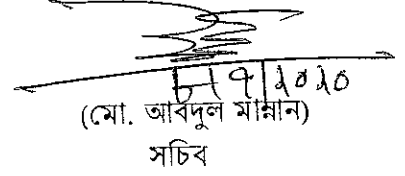 ৮।৭।২০২০
(মো. আবদুল মান্নান)
সচিব